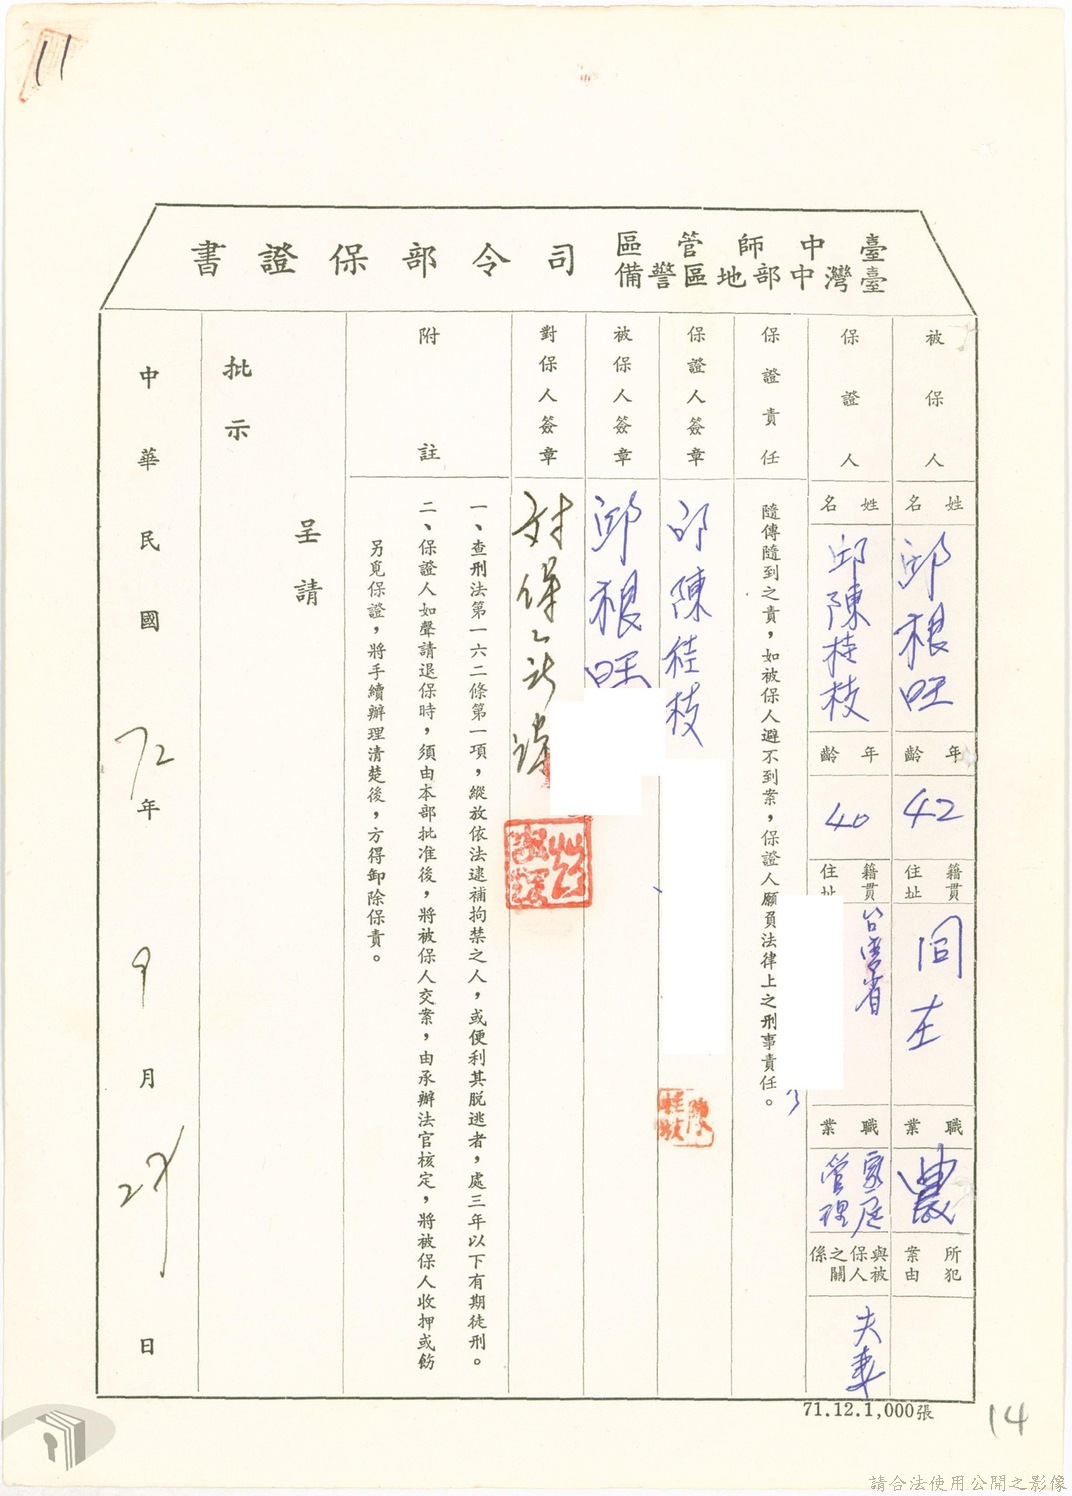 11
臺中師管區
臺灣中部地區警備
司令部保證書
被保人
姓名
邱根旺
年齡
42
籍貫
住址
同左
職業
農
所犯
案由
保證人
姓名
邱陳桂枝
年齡
40
籍貫
住址
台灣省
職業
家庭
管理
與被保人之關係
夫妻
保證責任
隨傳隨到之責,如被保人避不到案,保證人願負法律上之刑事責任。
保證人簽章
邱陳桂枝
陳桂枝
被保人簽章
邱根旺
對保人簽章
附註
一、查刑法第一六二條第一項,縱放依法逮補拘禁之人,或便利其脫逃者,處三年以下有期徒刑。
二、保證人如聲請退保時,須由本部批准後,將被保人交案,由承辦法官核定,將被保人收押或飭
另覓保證,將手續辦理清楚後,方得卸除保責。
呈請
批示
中華民國72年9月27日
71.12.1,000張
14
請合法使用公開之影像